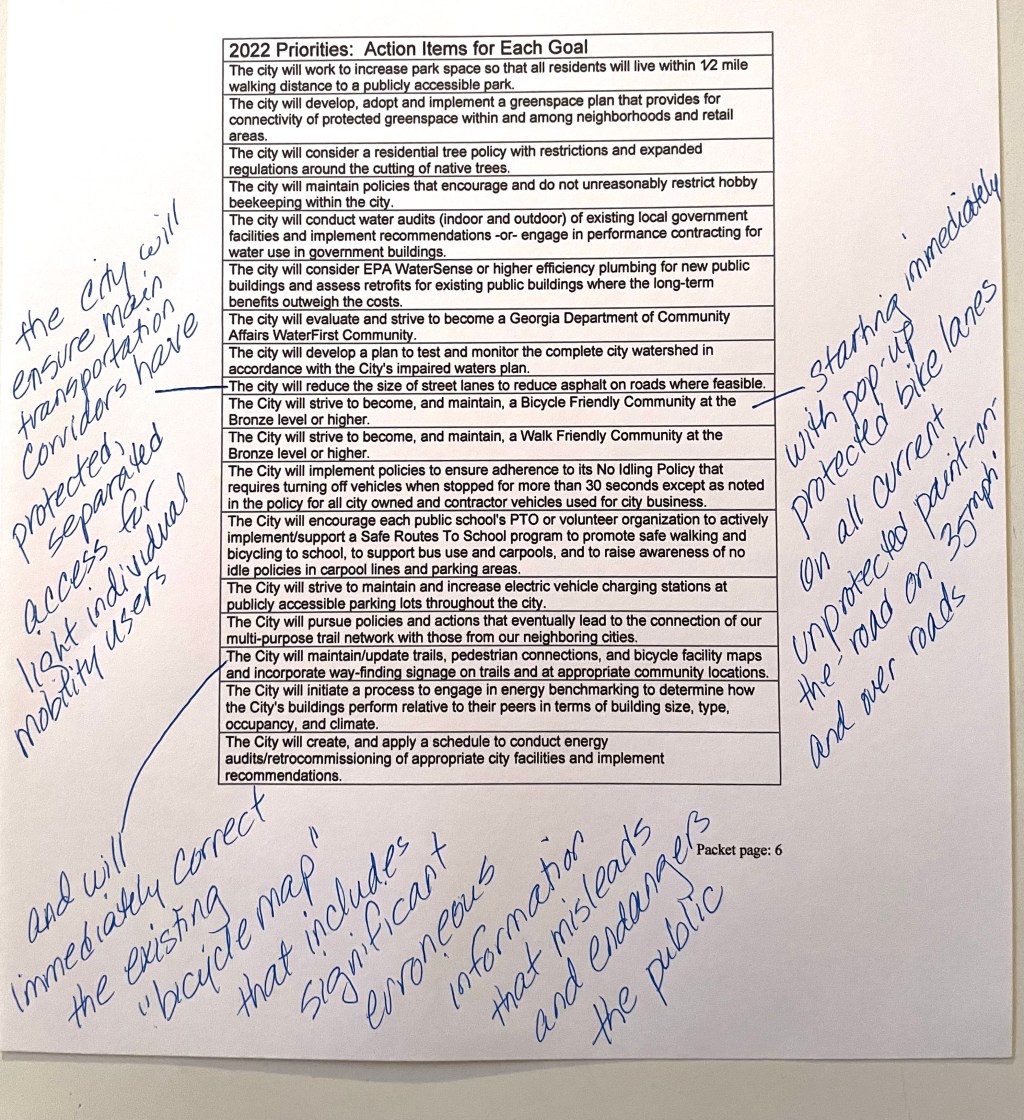 2022 Priorities:  Action Items for Each Goal
The city will work to increase park space so that all residents will live within 1⁄2 mile
walking distance to a publicly accessible park.
The city will develop, adopt and implement a greenspace plan that provides for
connectivity of protected greenspace within and among neighborhoods and retail
areas.
The city will consider a residential tree policy with restrictions and expanded
regulations around the cutting of native trees.
The city will maintain policies that encourage and do not unreasonably restrict hobby
beekeeping within the city.
The city will conduct water audits (indoor and outdoor) of existing local government
facilities and implement recommendations -or- engage in performance contracting for
water use in government buildings.
The city will consider EPA WaterSense or higher efficiency plumbing for new public
buildings and assess retrofits for existing public buildings where the long-term
benefits outweigh the costs.
The city will evaluate and strive to become a Georgia Department of Community
Affairs WaterFirst Community.
The city will develop a plan to test and monitor the complete city watershed in
accordance with the City's impaired waters plan.
The city will reduce the size of street lanes to reduce asphalt on roads where feasible.
The City will strive to become, and maintain, a Bicycle Friendly Community at the
Bronze level or higher.
The City will strive to become, and maintain, a Walk Friendly Community at the
Bronze level or higher.
The City will implement policies to ensure adherence to its No Idling Policy that
requires turning off vehicles when stopped for more than 30 seconds except as noted
in the policy for all city owned and contractor vehicles used for city business.
The City will encourage each public school's PTO or volunteer organization to actively
implement/support a Safe Routes To School program to promote safe walking and
bicycling to school, to support bus use and carpools, and to raise awareness of no
idle policies in carpool lines and parking areas.
The City will strive to maintain and increase electric vehicle charging stations at
publicly accessible parking lots throughout the city.
The City will pursue policies and actions that eventually lead to the connection of our
multi-purpose trail network with those from our neighboring cities.
The City will maintain/update trails, pedestrian connections, and bicycle facility maps
and incorporate way-finding signage on trails and at appropriate community locations.
The City will initiate a process to engage in energy benchmarking to determine how
the City's buildings perform relative to their peers in terms of building size, type,
occupancy, and climate.
The City will create, and apply a schedule to conduct energy
audits/retrocommissioning of appropriate city facilities and implement
recommendations.
Packet page: 6
the city will
ensure main
transportation
corridors have
protected,
separated
access for
light individual
mobility users
starting immediately
with pop-up
protected bike lanes
on all current
unprotected paint-on-
the-road on 35mph
and over roads
and will
immediately correct
the existing
"bicycle map"
that includes
significant
erroneous
information
that misleads
and endangers
the public